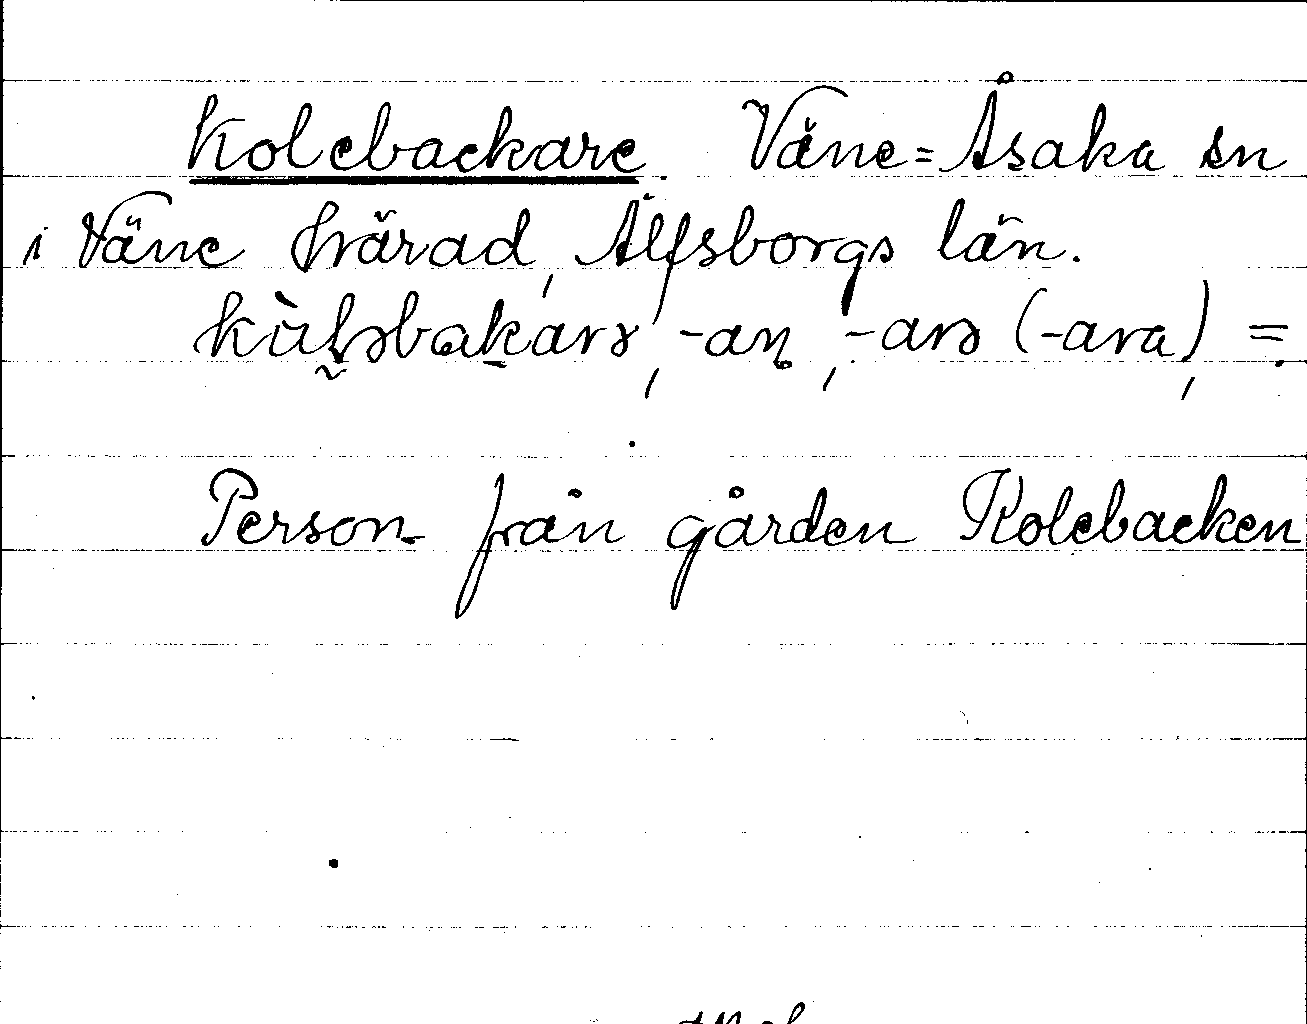 Kolebackare. Väne=Åsaka sn
i Väne härad, Älfsborgs län.
kùłəbakarə, -aṇ, -arə (-ara), =
Person från gården Kolebacken